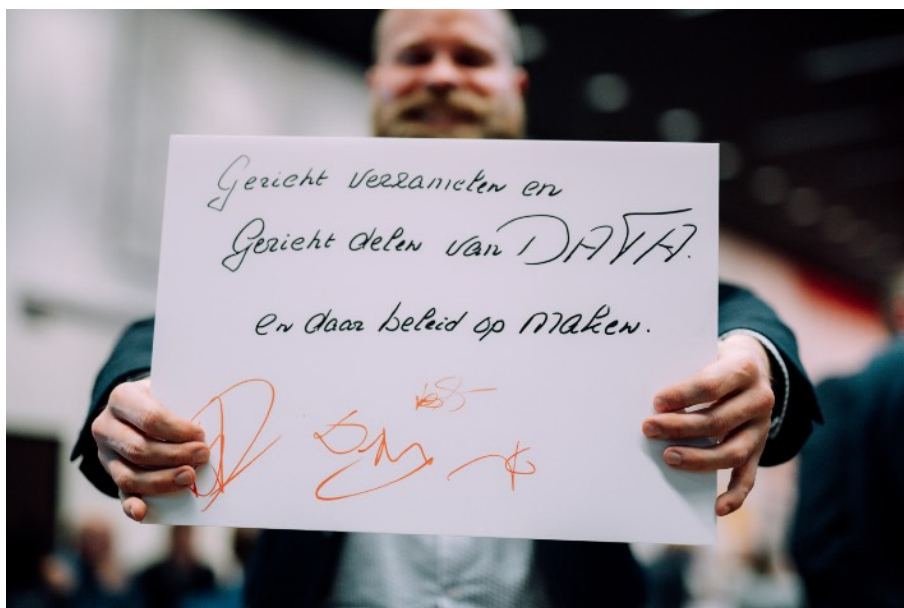 Gericht verzamelen en
Gericht delen van DATA.
en daar beleid op maken.